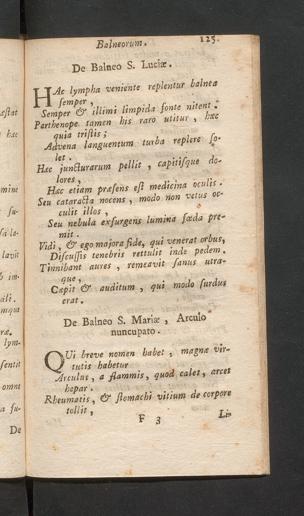 Balneorum. 125.
De Balneo S. Luciæ.
HAc lympha veniente replentur balnea
semper,
Semper & illimi limpida fonte nitent:
Parthenope tamen his raro utitur, hæc
quia tristis;
Advena languentum turba replere so-
let.
Hæc juncturarum pellit, capitisque do-
lores,
Hæc etiam præsens est medicina oculis.
Seu cataracta nocens, modo non vetus oc-
culit illos,
Seu nebula exsurgens lumina fœda pre-
mit.
Vidi, & ego majora fide, qui venerat orbus,
Discussis tenebris rettulit inde pedem.
Tinnibant aures, remeavit sanus utra-
que,
Capit & auditum, qui modo surdus
erat.
De Balneo S. Mariæ, Arculo
nuncupato.
QUi breve nomen habet, magnæ vir-
tutis habetur
Arculus, a flammis, quod calet, arcet
hepar.
Rheumatis, & stomachi vitium de corpore
tollit,
F 3 Li-
De